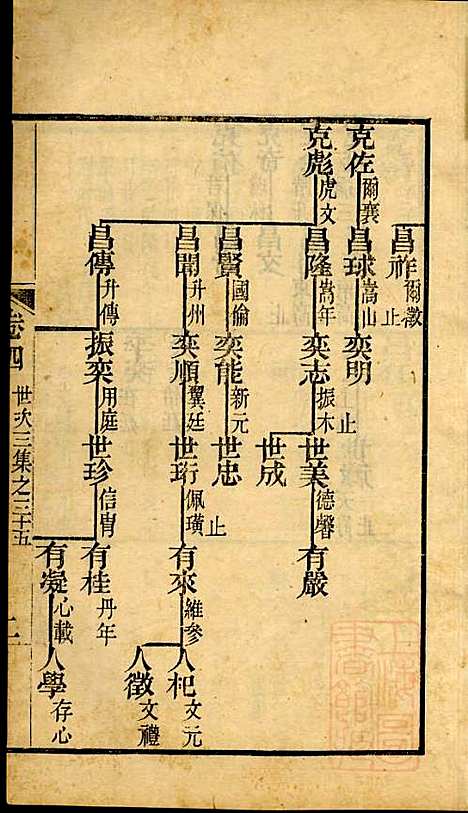 昌祚 爾徵 止
克佐 爾襄 昌球 嵩山 奕明
克彪 虎文 昌隆 嵩年 奕志 振木 止 世美 德馨 有嚴
世成
昌賢 國倫 奕能 新元 世忠 止
昌開 升州 奕順 翼廷 世珩 佩璜 有來 維參 人杞 文元
人徵 文禮
昌傳 升傳 振奕 用庭 世珍 信胄 有桂 丹年
有凝 心載 人學 存心
卷四 世次三集之三十五